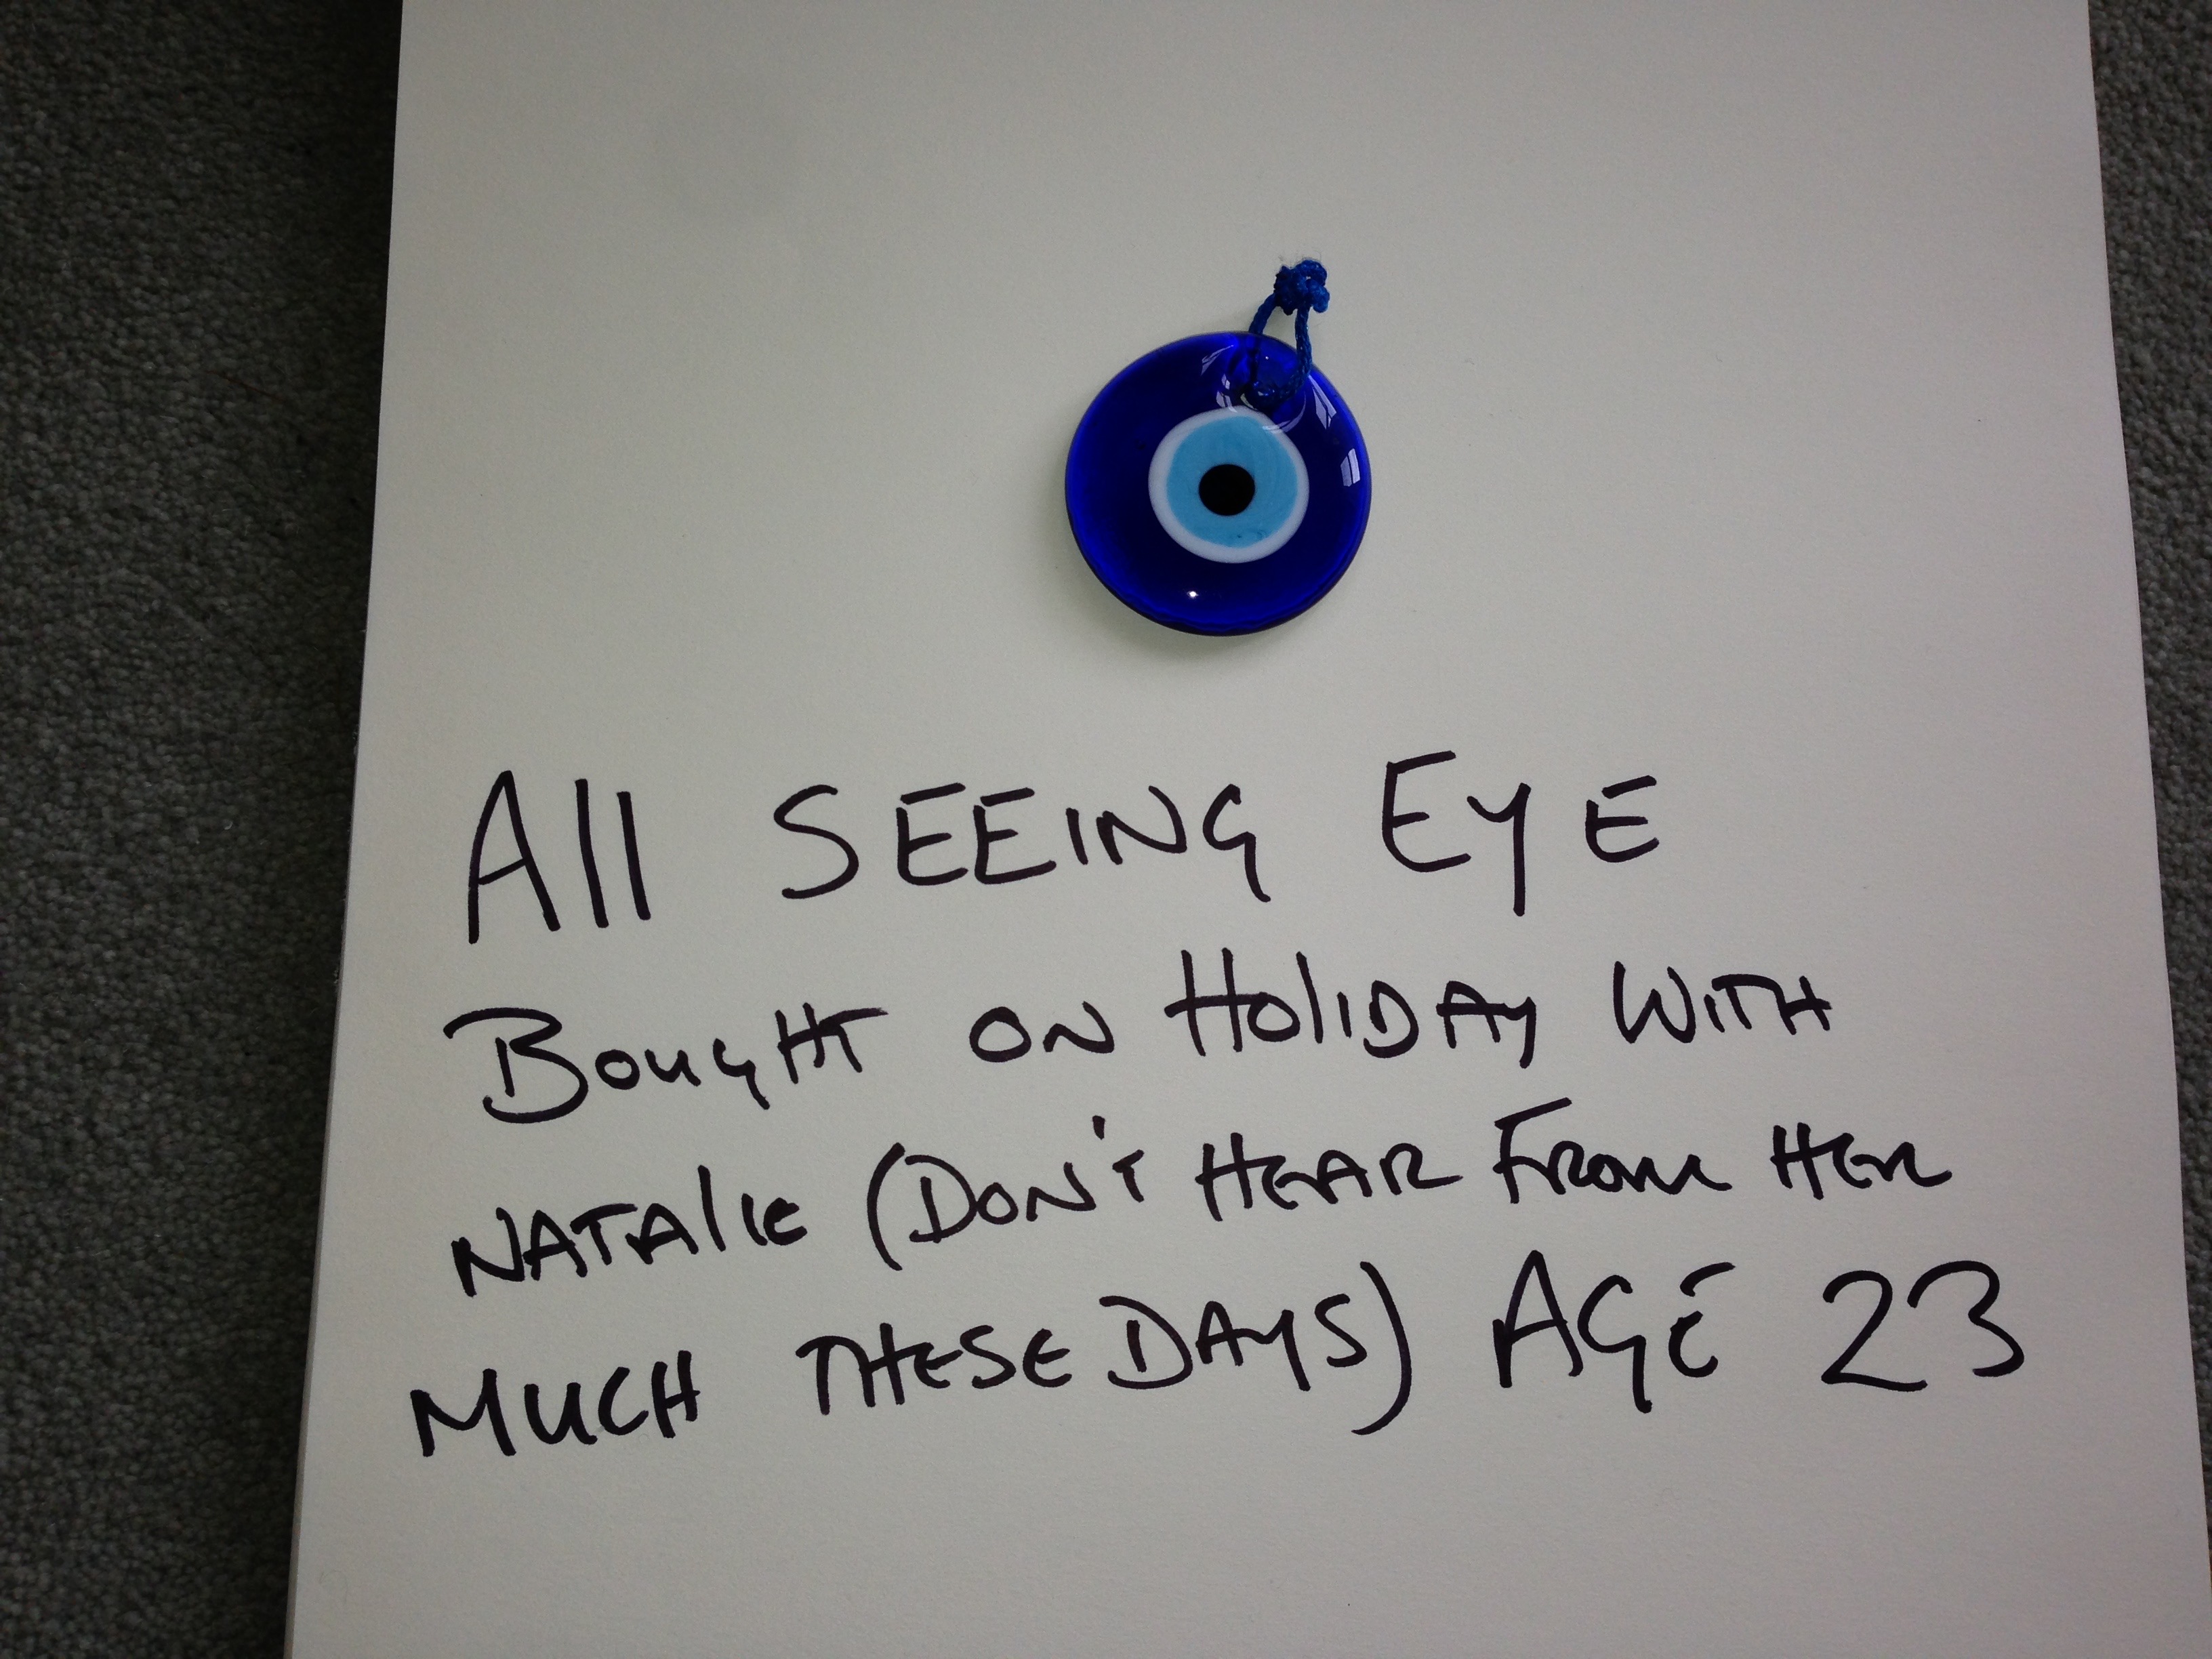 All SEEING EYE
BOUGHT ON HOLIDAY WITH
NATALIE (DON'T HEAR FROM HER
MUCH THESE DAYS) AGE 23